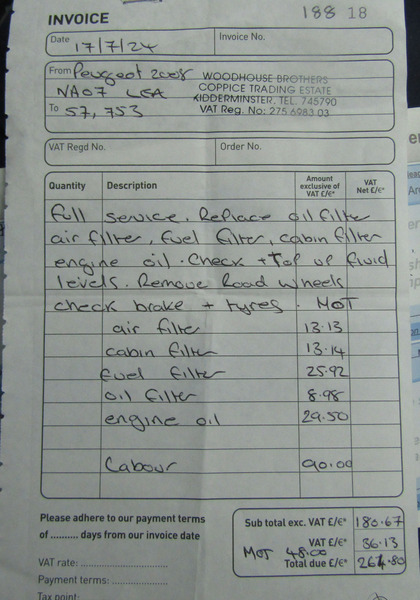 INVOICE
188 18
Date 17/7/24 Invoice No.
From Peugeot 2008
WOODHOUSE BROTHERS
COPPICE TRADING ESTATE
KIDDERMINSTER, TEL. 745790
VAT Reg. No: 275 6983 03
NA07 LEA
To 57,753
VAT Regd No. Order No.
Quantity Description Amount exclusive of VAT £/€* VAT Net £/€*
Full service. Replace oil filter
air filter, fuel filter, cabin filter
engine oil. Check + top up fluid
levels. Remove Road wheels
check brake + tyres. MOT
air filter 13.13
cabin filter 13.14
fuel filter 25.92
oil filter 8.98
engine oil 29.50
Labour 90.00
Please adhere to our payment terms
of .......... days from our invoice date
Sub total exc. VAT £/€* 180.67
VAT £/€* 36.13
MOT 48.00
Total due £/€* 264.80
VAT rate:
Payment terms:
Tax point: